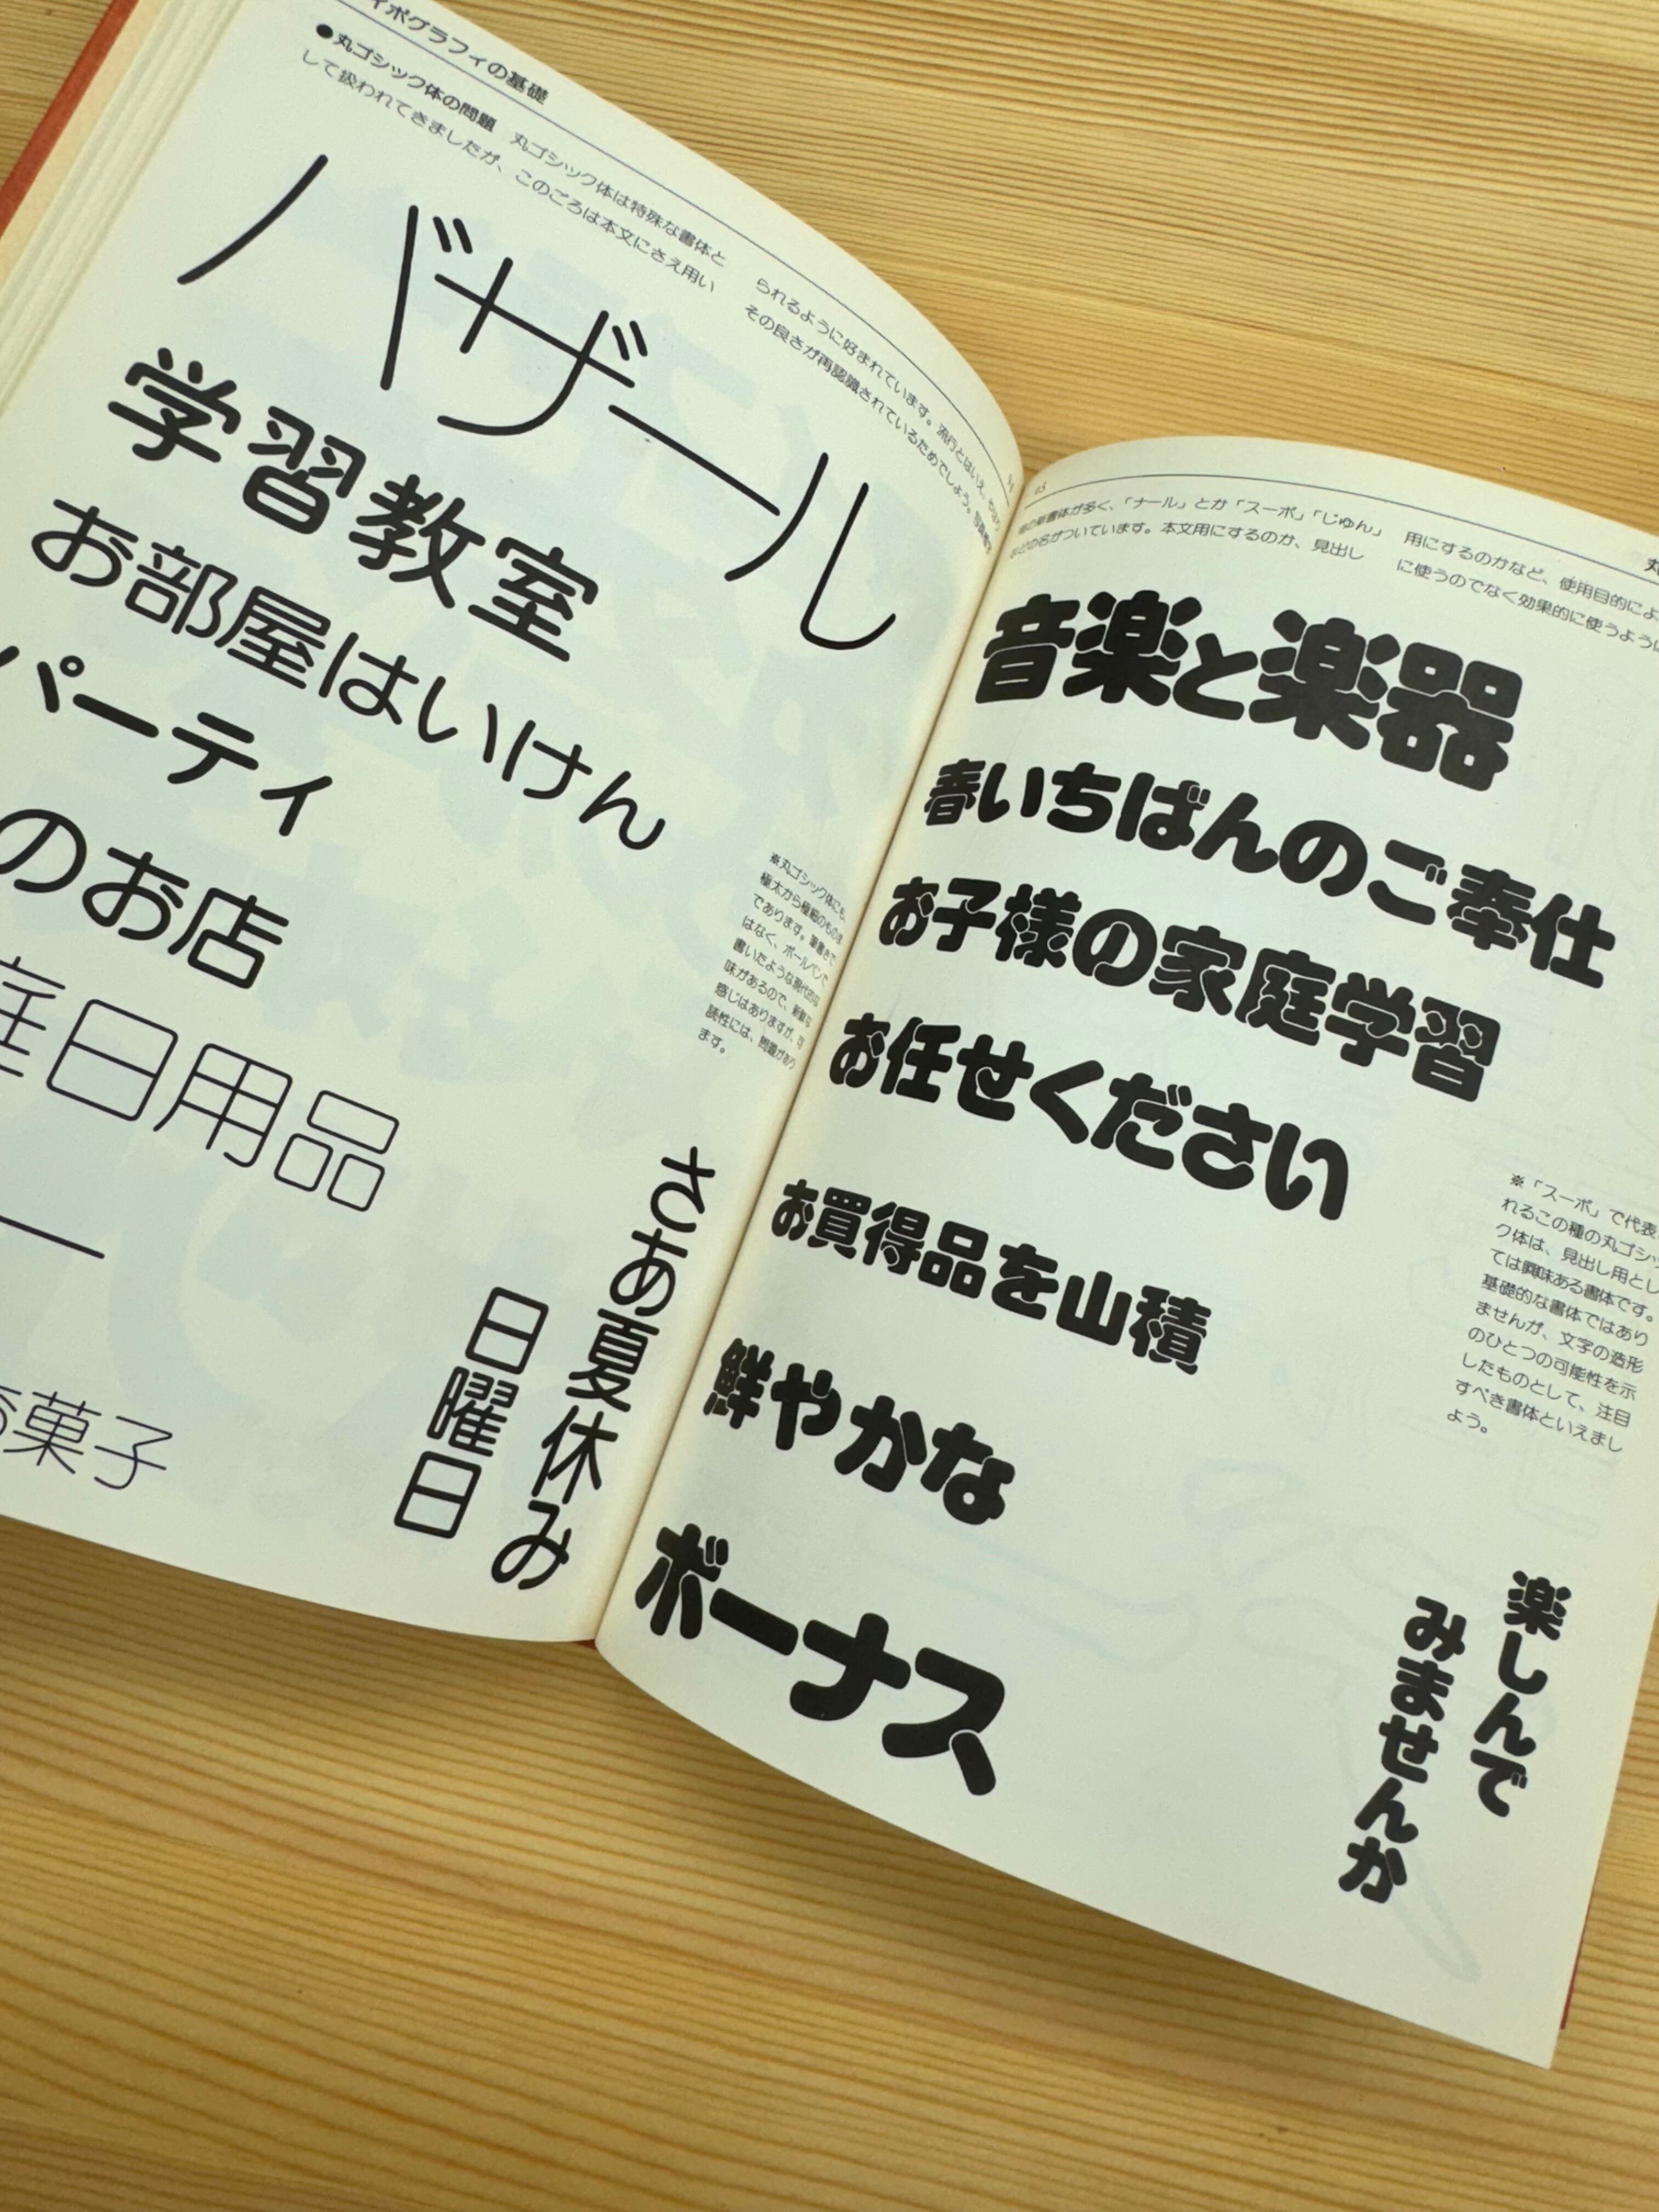 イポグラフィの基礎
●丸ゴシック体の問題　丸ゴシック体は特殊な書体と
して扱われてきましたが、このごろは本文にさえ用い
られるように好まれています。流行とはいえ、
その良さが再認識されているためでしょう。
バザール
学習教室
お部屋はいけん
パーティ
のお店
庭日用品
ー
菓子
※丸ゴシック体にも、
極太から極細のものま
であります。筆書きで
はなく、ボールペンで
書いたような現代的な
味があるので、新鮮な
感じはありますが、可
読性には、問題があり
ます。
さあ夏休み
日曜日
の新書体が多く、「ナール」とか「スーボ」「じゅん」
などの名がついています。本文用にするのか、見出し
用にするのかなど、使用目的によ
に使うのでなく効果的に使うように
音楽と楽器
春いちばんのご奉仕
お子様の家庭学習
お任せください
お買得品を山積
鮮やかな
ボーナス
※「スーボ」で代表
れるこの種の丸ゴシッ
ク体は、見出し用とし
ては興味ある書体です。
基礎的な書体ではあり
ませんが、文字の造形
のひとつの可能性を示
したものとして、注目
すべき書体といえまし
ょう。
楽しんで
みませんか